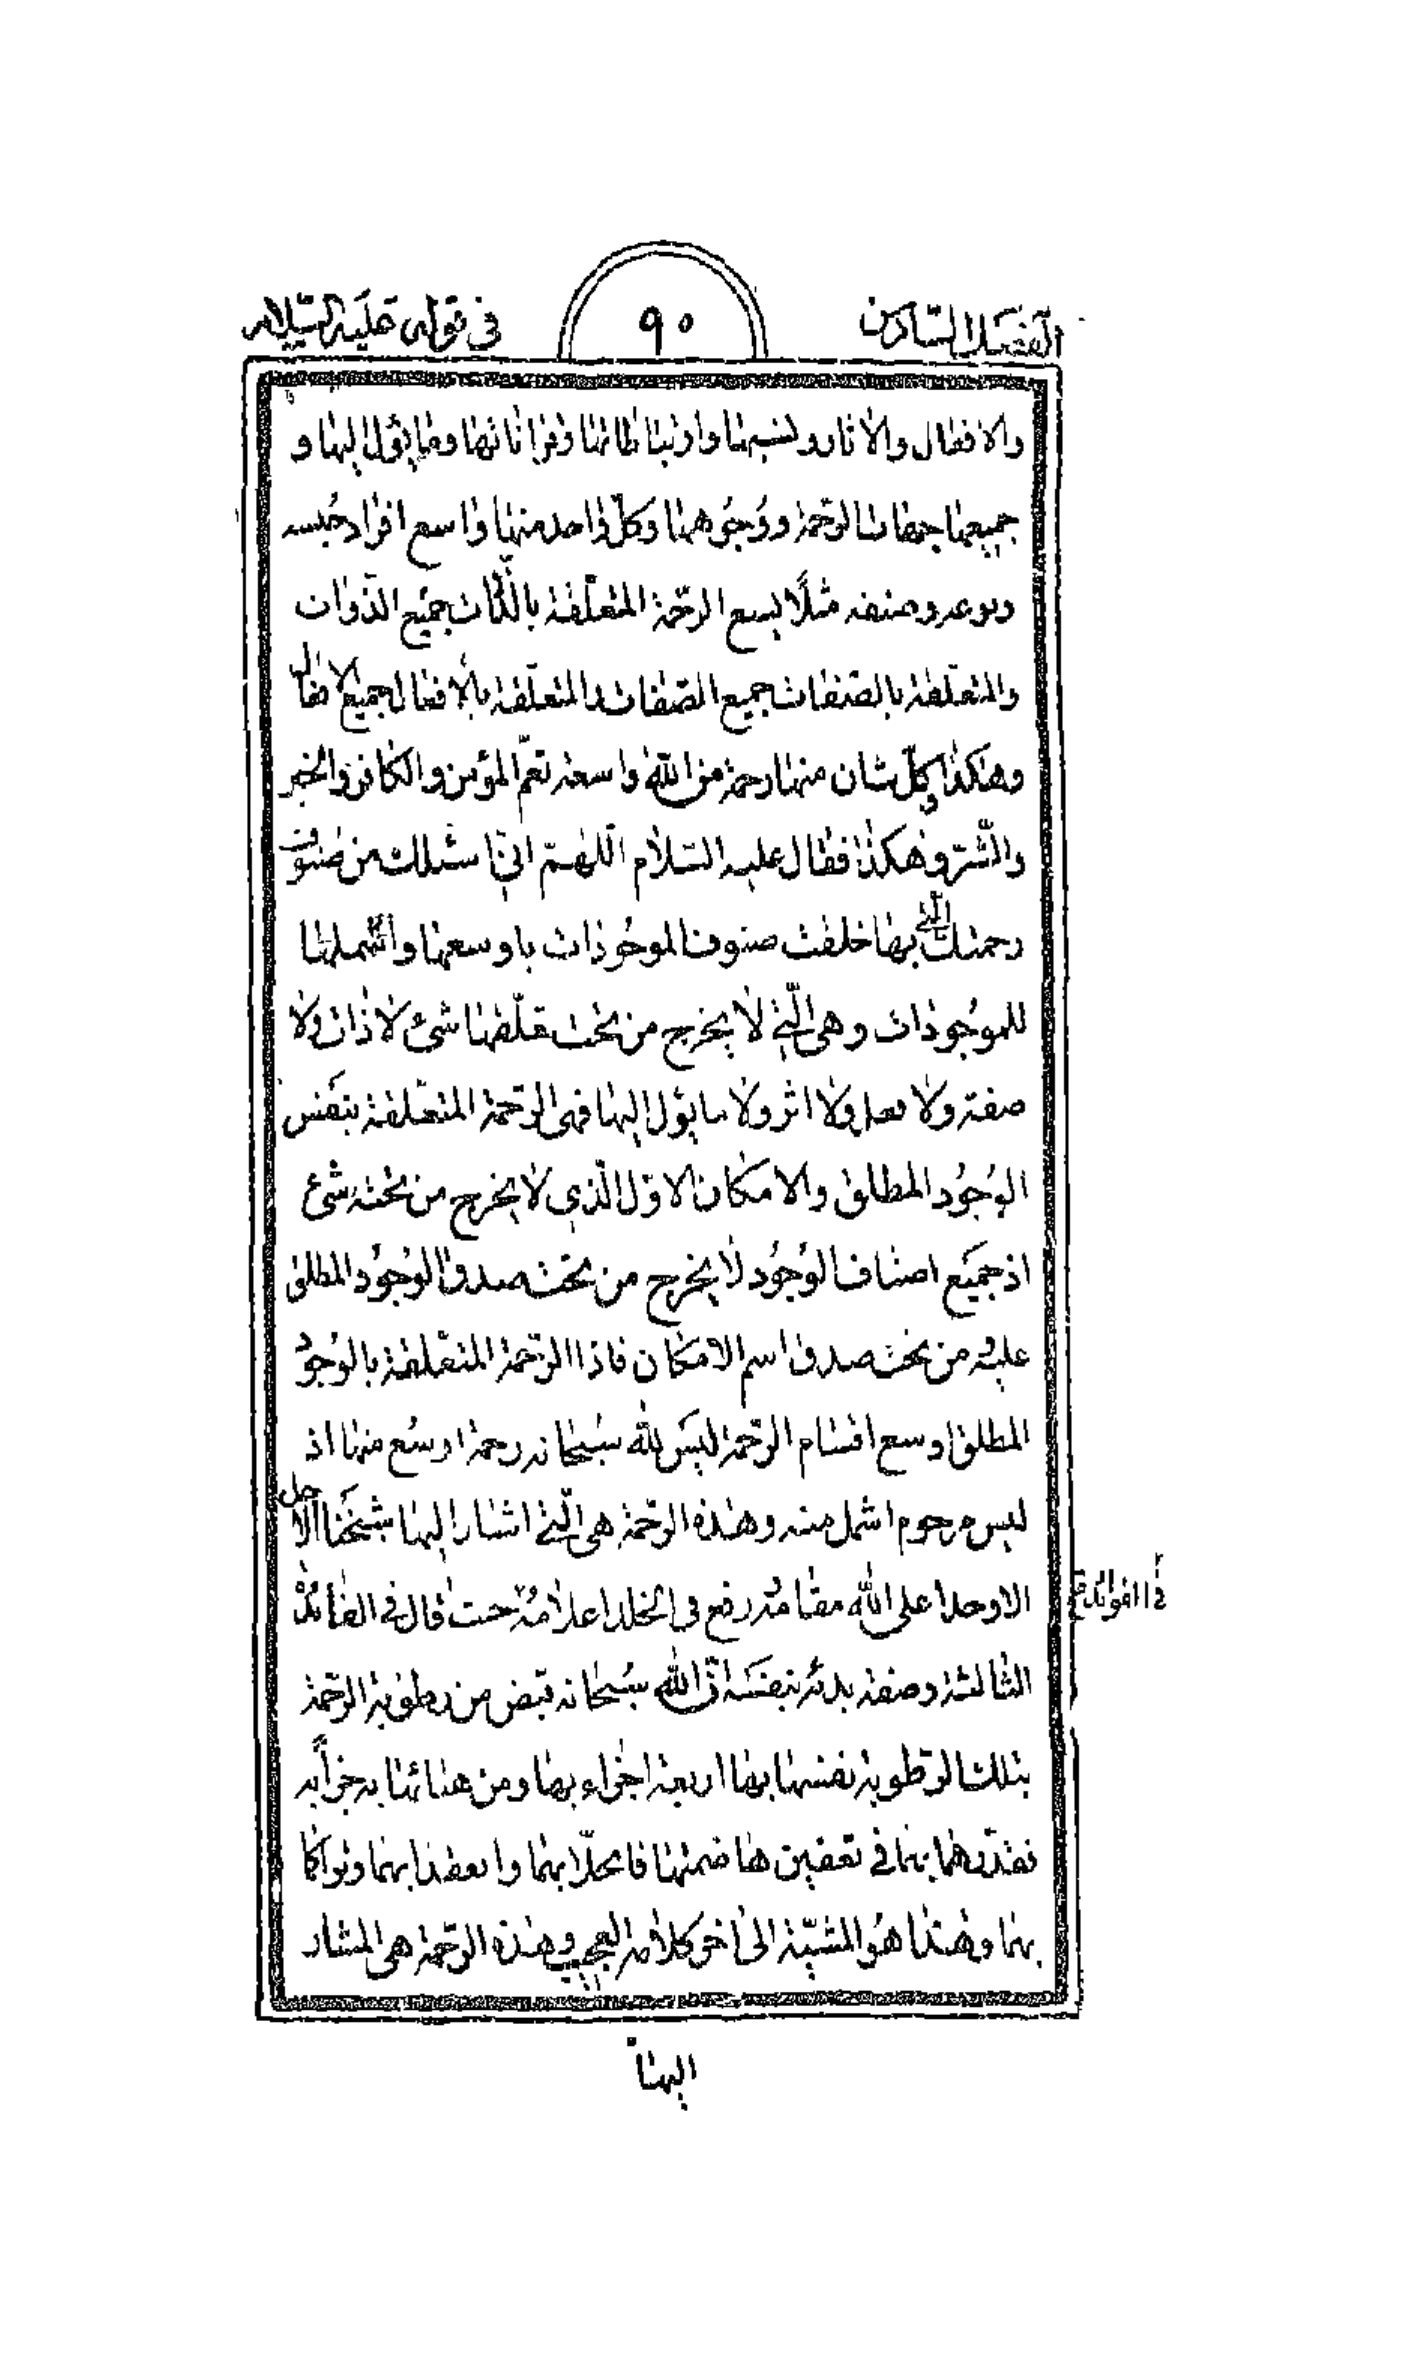 الفصل السادس
٩٠
في قوله عليه السلام
والافعال والاثار ولنسبها وارتباطاتها وقراناتها وما يؤل اليها و
جميعها جهات الرحمة ووجوهها وكل واحد منها واسع افراد جنسه
ونوعه وصنفه مثلًا يسع الرحمة المتعلقة بالذات جميع الذوات
والمتعلقة بالصفات جميع الصفات والمتعلقة بالافعال جميع الافعال
وهكذا وكل شان منها رحمة من الله واسعة تعم المؤمن والكافر والخير
والشر وهكذا فقال عليه السلام اللهم اني اسئلك من صنوف
رحمتك التي بها خلقت صنوف الموجودات باوسعها واشملها
للموجودات وهي التي لا يخرج من تحت تعلقها شئ لا ذات ولا
صفة ولا فعل ولا اثر ولا ما يؤل اليها فهي الرحمة المتعلقة بنفس
الوجود المطلق والامكان الاول الذي لا يخرج من تحته شئ
اذ جميع اصناف الوجود لا يخرج من تحت صدق الوجود المطلق
عليه من تحت صدق اسم الامكان فاذا الرحمة المتعلقة بالوجود
المطلق اوسع اقسام الرحمة ليس لله سبحانه رحمة اوسع منها اذ
ليس مرحوم اشمل منه وهذه الرحمة هي التي اشار اليها شيخنا الاجل
الاوحد اعلى الله مقامه ورفع في الخلد اعلامه حيث قال في الفائدة
في الفوائد
الثالثة وصفة بدئه بنفسه ان الله سبحانه قبض من رطوبة الرحمة
بتلك الرطوبة نفسها بها اربعة اجزاء بها ومن هبائها به جزءا به
فقدرهما بهما في تعفين هاضمتها فانحلا بهما وانعقدا بهما وتراكما
بهما وهذا هو المشية الى اخر كلامه العجيب وهذه الرحمة هي المشار
اليها